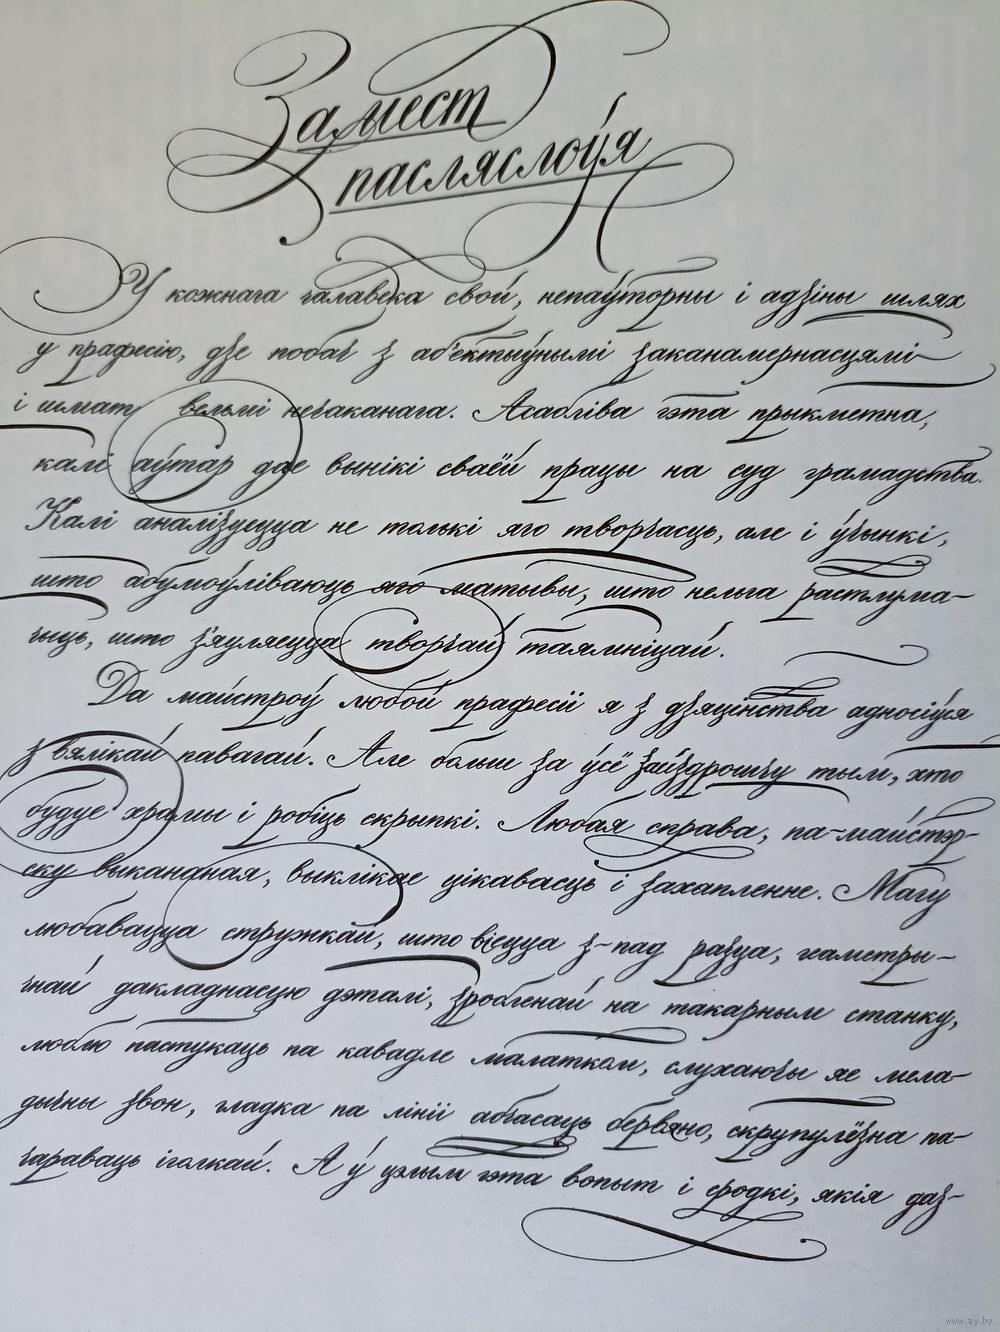 Замест
пасляслоўя
У кожнага чалавека свой, непаўторны і адзіны шлях
у прафесію, дзе побач з аб'ектыўнымі заканамернасцямі
і шмат вельмі нечаканага. Асабліва гэта прыкметна,
калі аўтар дае вынікі сваёй працы на суд грамадства.
Калі аналізуецца не толькі яго творчасць, але і ўчынкі,
што абумоўліваюць яго матывы, што нельга растлума-
чыць, што з'яуляецца творчай таямніцай.
Да майстроў любой прафесіі я з дзяцінства адносіўся
з вялікай павагай. Але больш за ўсё зайздрошчу тым, хто
будуе храмы і робіць скрыпкі. Любая справа, па-майстэр-
ску выкананая, выклікае цікавасць і захапленне. Магу
любавацца стружкай, што вісцца з-пад разца, геаметры-
чнай дакладнасцю дэталі, зробленай на такарным станку,
люблю пастукаць па кавадле малатком, слухаючы яе мела-
дычны звон, гладка па лініі абчасаць бервяно, скрупулёзна па-
чараваць іголкай. А ў цэлым гэта вопыт і сродкі, якія даз-
www.ay.by